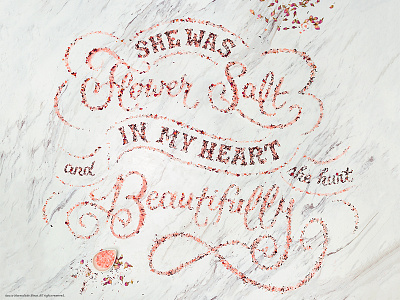 SHE WAS
Flower Salt
IN MY HEART
and she hurt
Beautifully